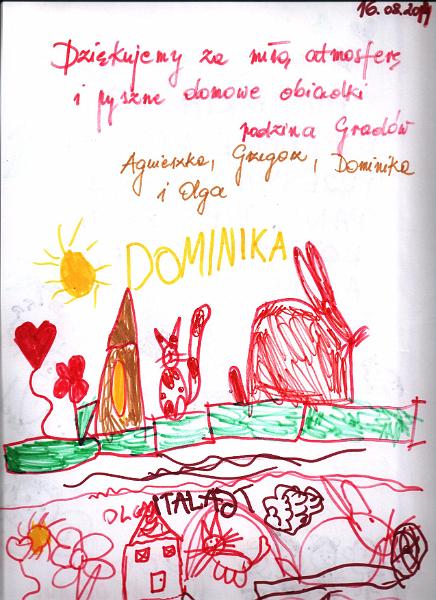 16.08.2014
Dziękujemy za miłą atmosferę
i pyszne domowe obiadki
rodzina Gradów
Agnieszka, Grzegorz, Dominika
i Olga
DOMINIKA
OLGA